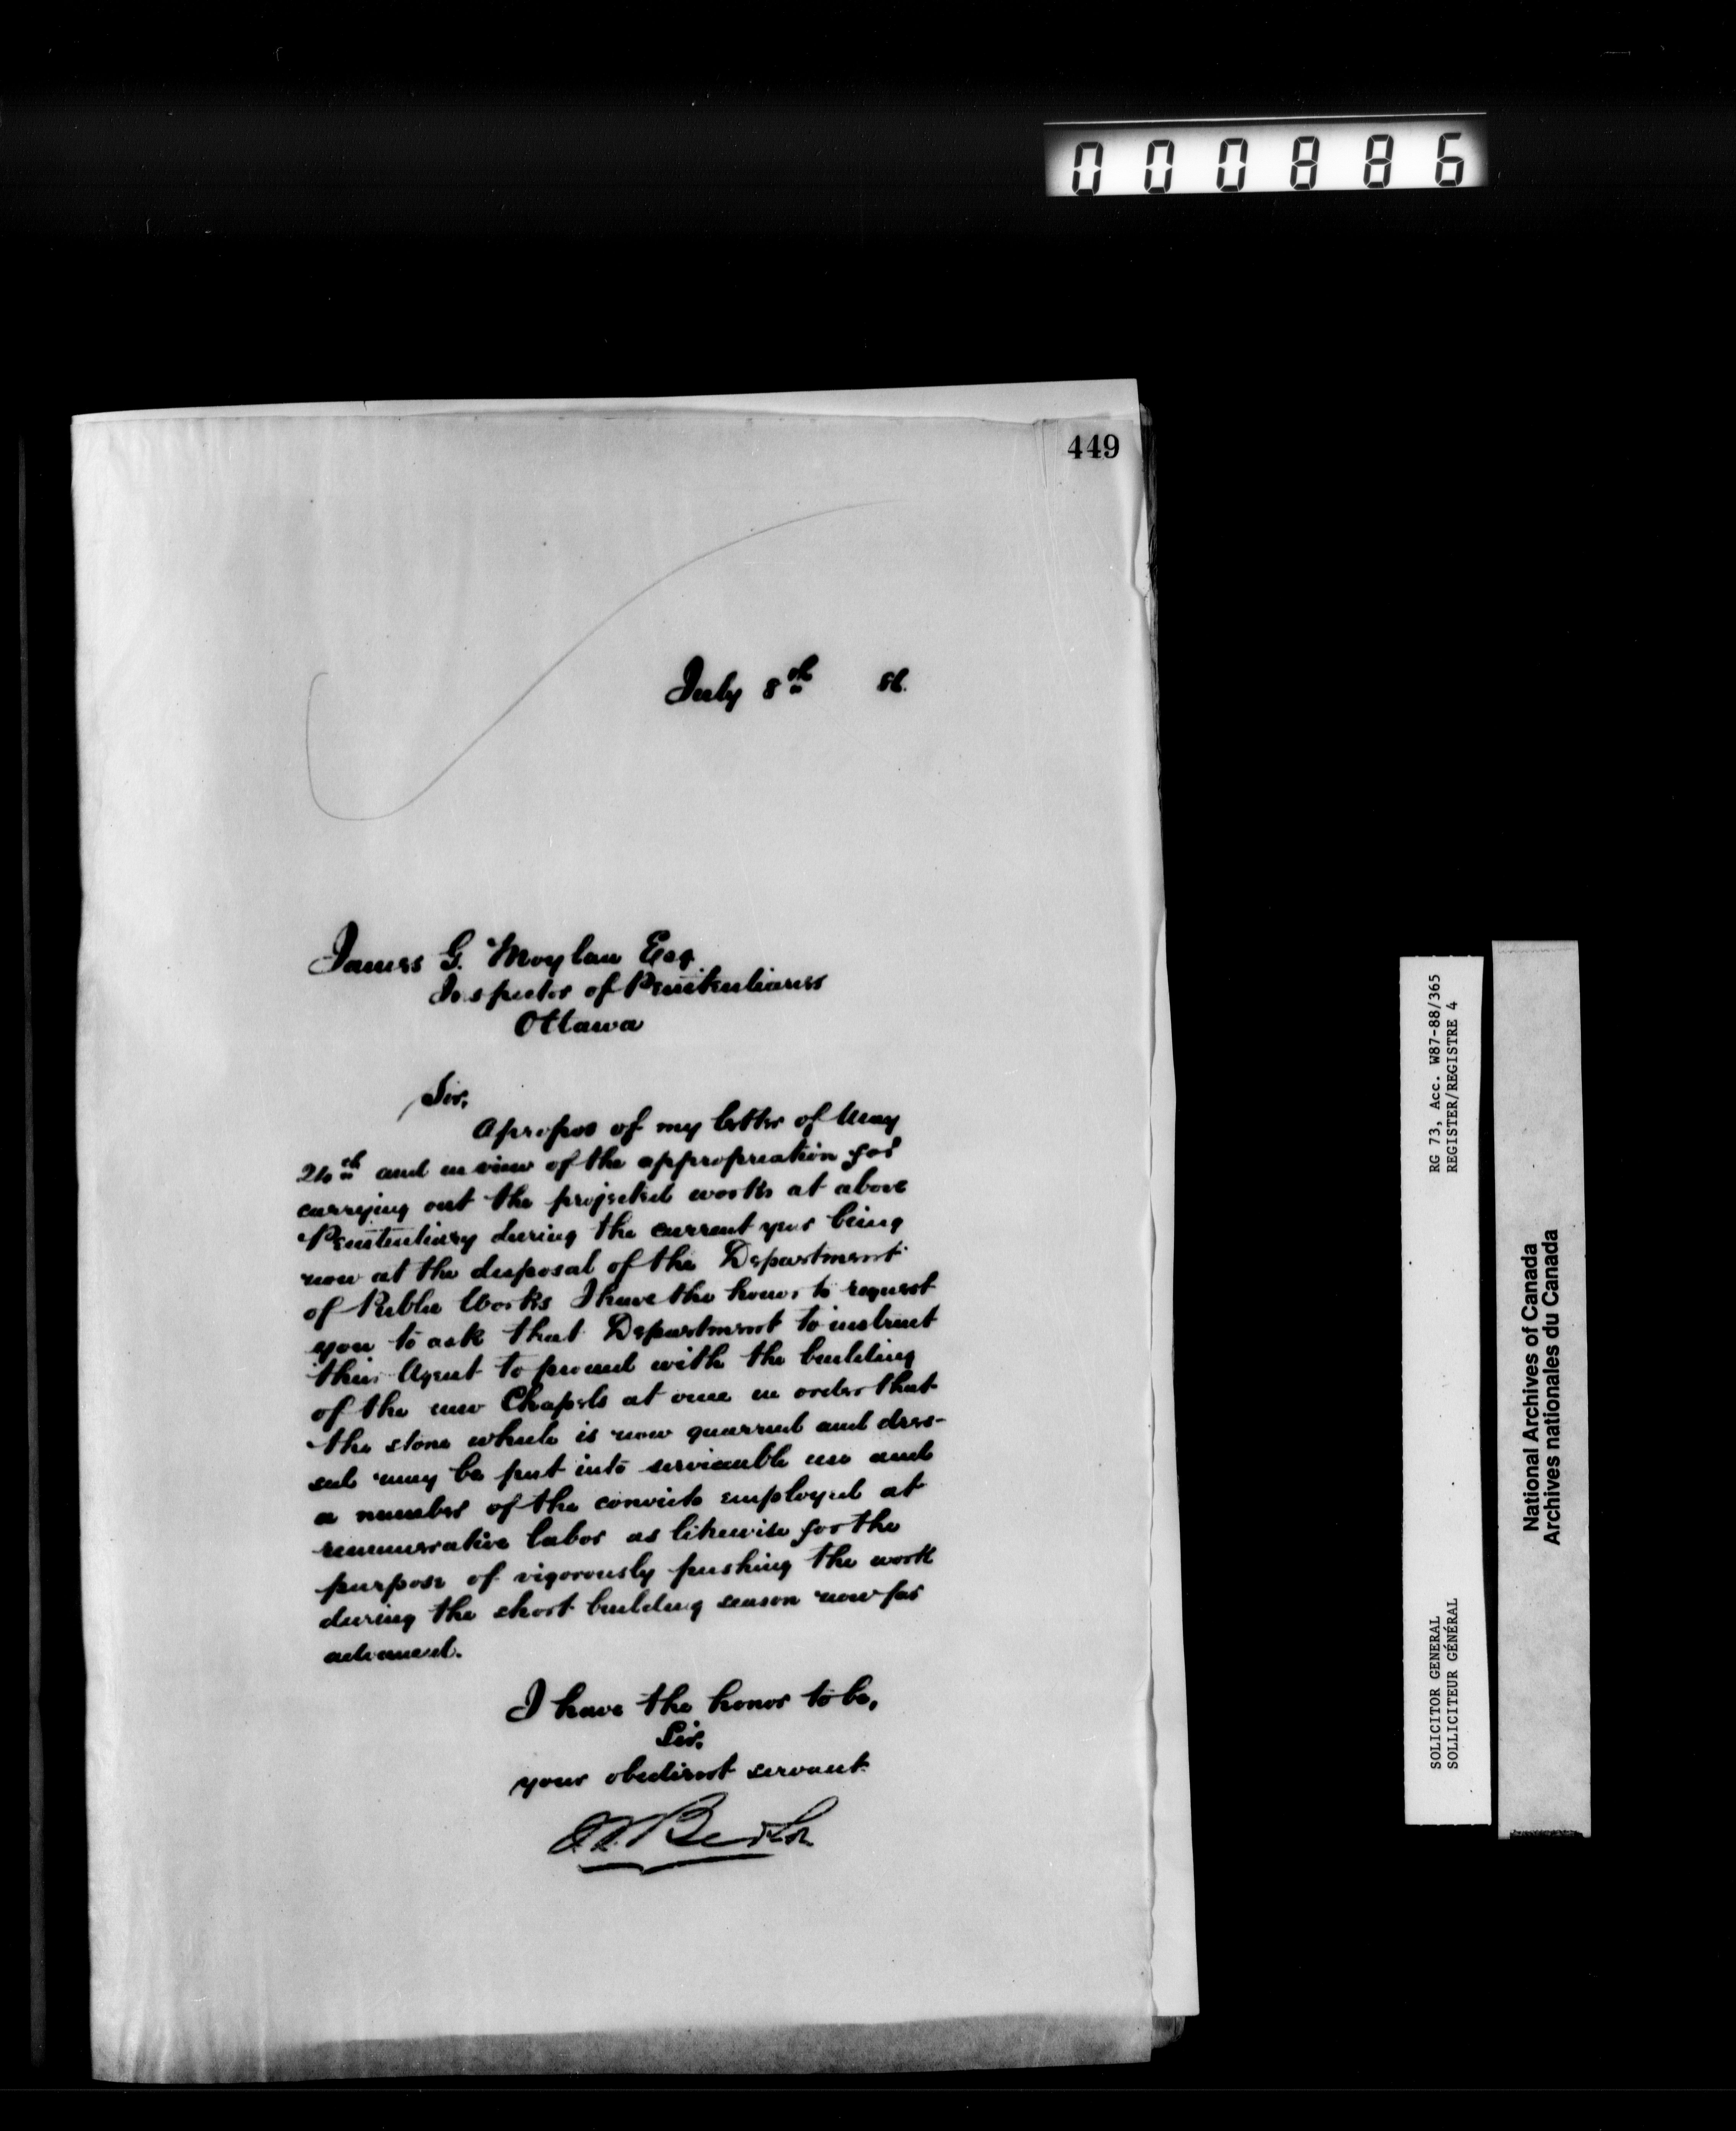 000886
449
July 8th 86.
James G. Moylan Esq
Inspector of Penitentiaries
Ottawa
Sir,
Apropos of my letter of May
26th and in view of the appropriation for
carrying out the projected works at above
Penitentiary during the current year being
now at the disposal of the Department
of Public Works I have the honor to request
you to ask that Department to instruct
their Agent to proceed with the building
of the new Chapels at once in order that
the stone which is now quarried and dres-
sed may be put into serviceable use and
a number of the convicts employed at
remunerative labor as likewise for the
purpose of vigorously pushing the work
during the short building season now far
advanced.
I have the honor to be,
Sir,
your obedient servant
RG 73, Acc. W87-88/365
REGISTER/REGISTRE 4
SOLICITOR GENERAL
SOLLICITEUR GÉNÉRAL
National Archives of Canada
Archives nationales du Canada